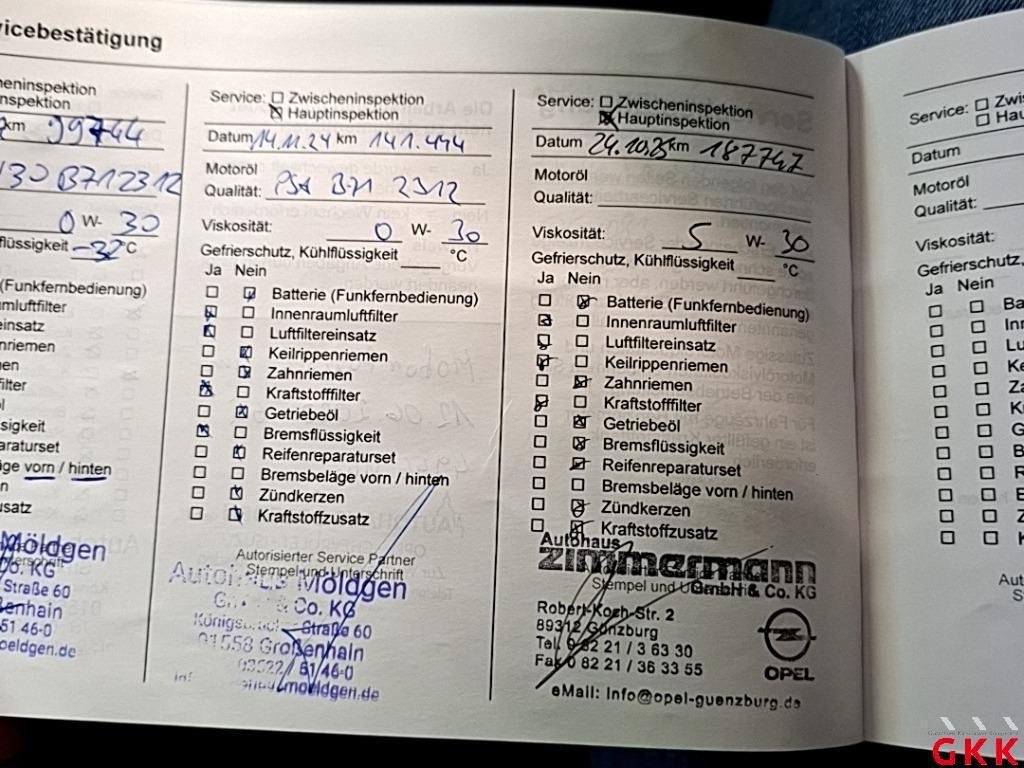 vicebestätigung
cheninspektion
nspektion
km 99744
130 B712312
0 W- 30
flüssigkeit -32°C
(Funkfernbedienung)
umluftfilter
einsatz
nriemen
men
filter
öl
sigkeit
paraturset
läge vorn / hinten
n
usatz
Möldgen
Co. KG
Straße 60
ßenhain
51 46-0
oeldgen.de
Service: Zwischeninspektion
Hauptinspektion
Datum 14.11.24 km 141.494
Motoröl
Qualität: PSA B71 2312
Viskosität: 0 W- 30
Gefrierschutz, Kühlflüssigkeit °C
Ja Nein
Batterie (Funkfernbedienung)
Innenraumluftfilter
Luftfiltereinsatz
Keilrippenriemen
Zahnriemen
Kraftstofffilter
Getriebeöl
Bremsflüssigkeit
Reifenreparaturset
Bremsbeläge vorn / hinten
Zündkerzen
Kraftstoffzusatz
Autorisierter Service Partner
Stempel und Unterschrift
Autohaus Möldgen
& Co. KG
Straße 60
01558 Großenhain
03522 / 51 46-0
moeldgen.de
Service: Zwischeninspektion
Hauptinspektion
Datum 24.10.25 km 187747
Motoröl
Qualität:
Viskosität: 5 W- 30
Gefrierschutz, Kühlflüssigkeit °C
Ja Nein
Batterie (Funkfernbedienung)
Innenraumluftfilter
Luftfiltereinsatz
Keilrippenriemen
Zahnriemen
Kraftstofffilter
Getriebeöl
Bremsflüssigkeit
Reifenreparaturset
Bremsbeläge vorn / hinten
Zündkerzen
Kraftstoffzusatz
Autohaus
zimmermann
GmbH & Co. KG
Stempel und
Robert-Koch-Str. 2
89312 Günzburg
Tel. 0 82 21 / 3 63 30
Fax 0 82 21 / 36 33 55
OPEL
eMail: Info@opel-guenzburg.de
Service: Zwis
Hau
Datum
Motoröl
Qualität:
Viskosität:
Gefrierschutz,
Ja Nein
Ba
Inn
Lu
Ke
Za
Kr
G
B
R
B
Z
K
Aut
S
GKK